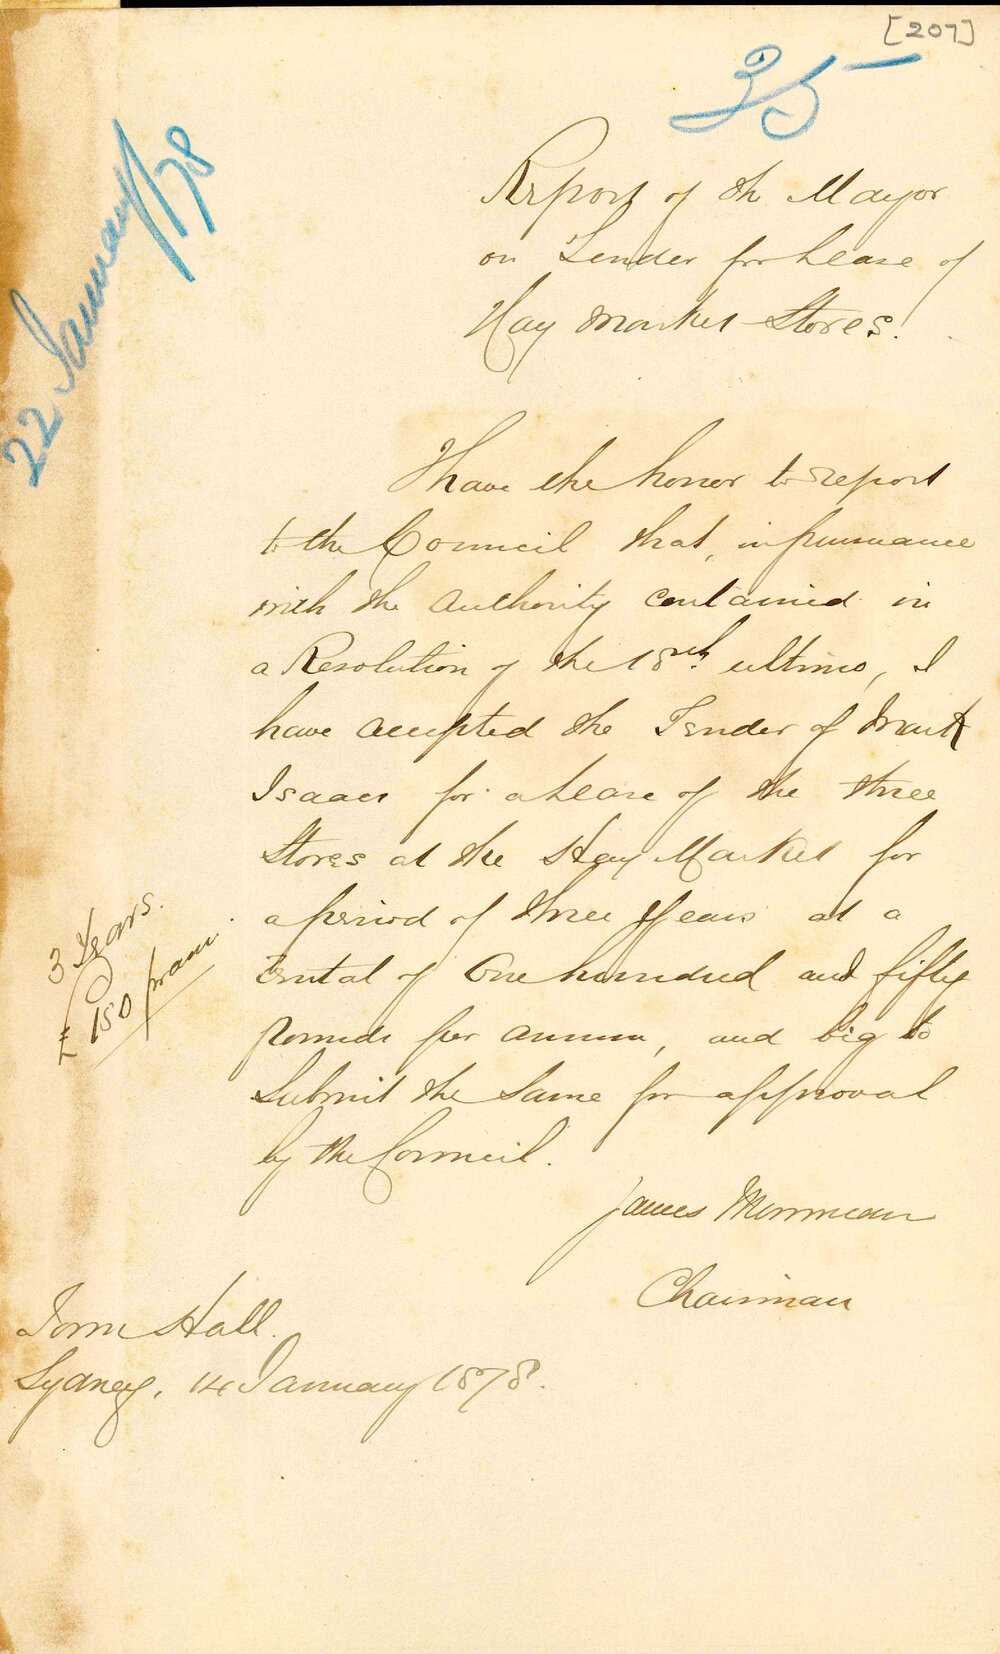 [207]
35
22 January/78
Report of the Mayor
on Tender for Lease of
Hay Market Stores.
I have the honor to report
to the Council that, in pursuance
with the authority contained in
a Resolution of the 18th ultimo, I
have accepted the Tender of Mark
Isaacs for a Lease of the three
Stores at the Hay Market for
a period of three Years at a
rental of One hundred and fifty
pounds per annum, and beg to
submit the same for approval
by the Council.
3 Years.
£150 pr ann
James Merriman
Chairman
Town Hall.
Sydney, 14 January 1878.